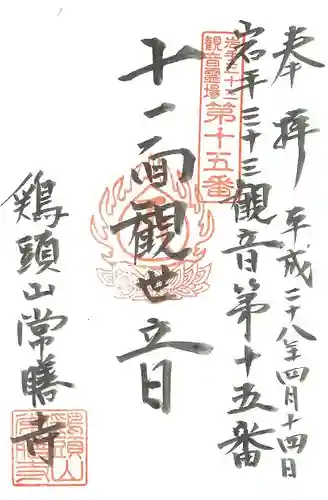 奉拝 平成二十八年四月十四日
岩手三十三観音第十五番
岩手三十三
観音霊場
第十五番
十一面観世音
鶏頭山常勝寺
鶏頭山
常勝寺